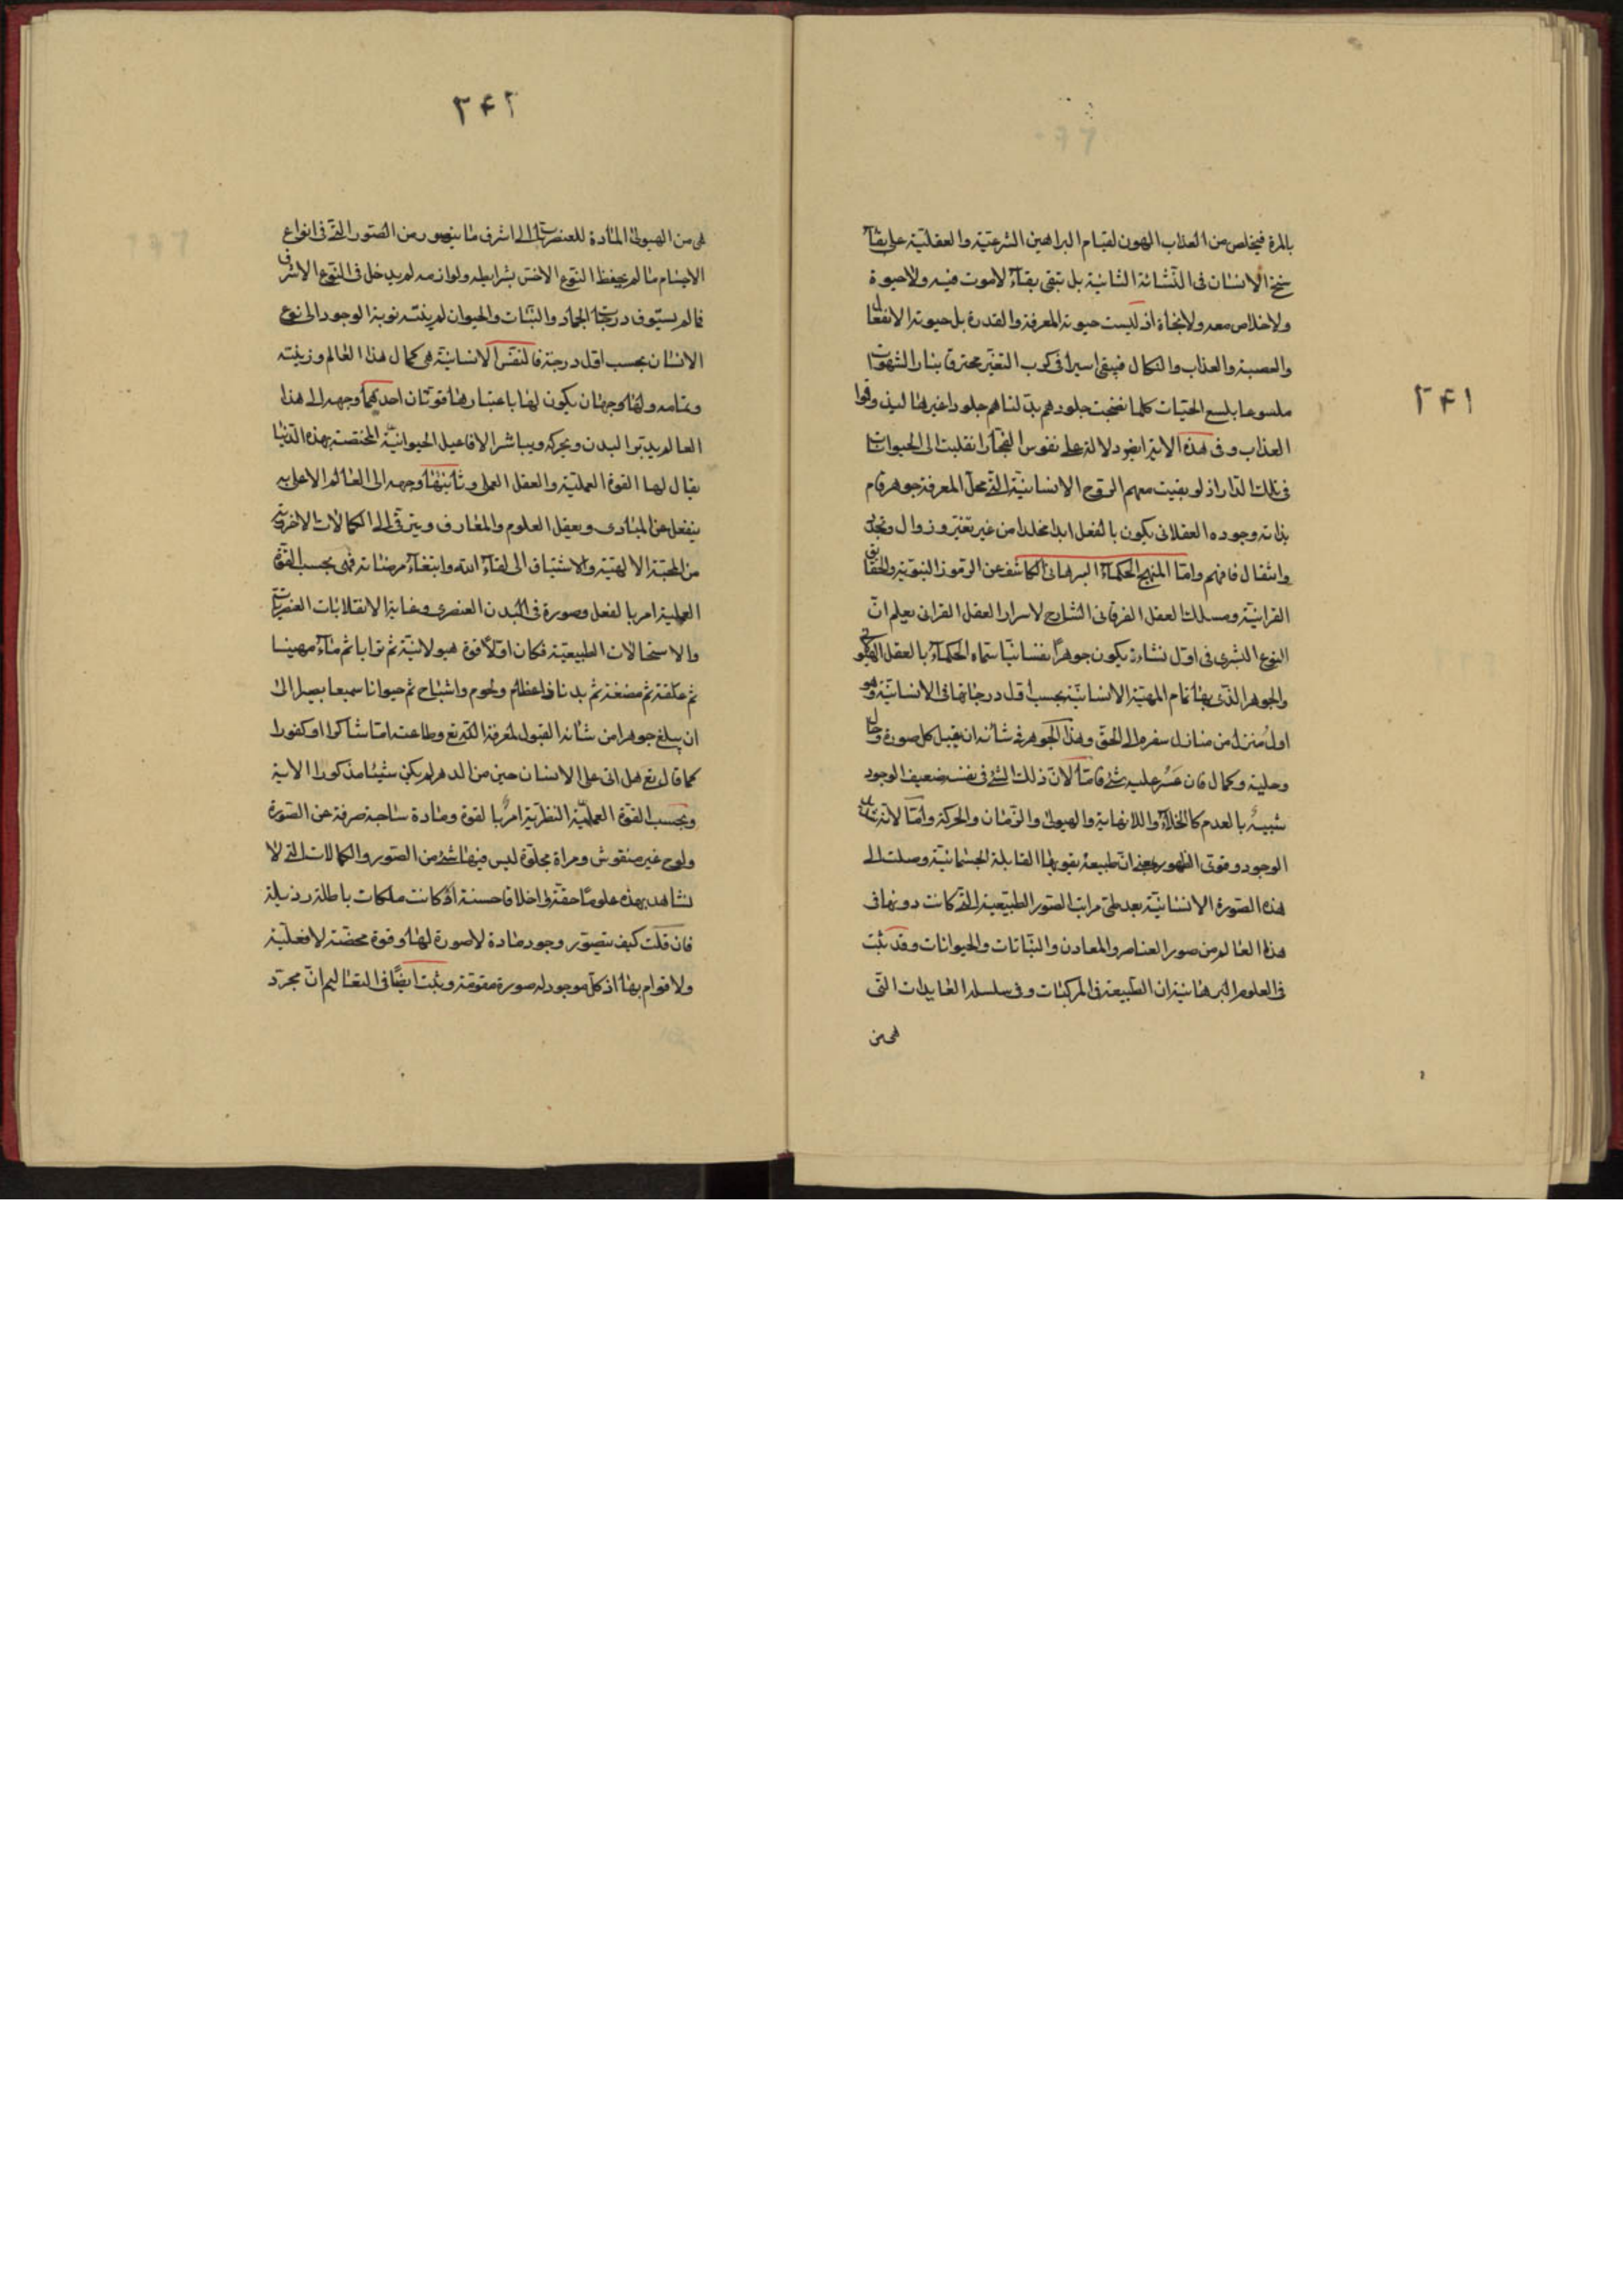 ۲۴۱
بالمرة فيخلص من العذاب المهون لقيام البراهين الشرعية والعقلية على بقاء
سنخ الانسان فى النشائة الثانية بل تبقى بقاء لاموت فيه ولا حيوة
ولا خلاص معه ولا نجاة اذ ليست حيوته المعرفة والقدرة بل حيوته الانفعال
والعصبة والعذاب والنكال فيبقى اسيرا فى كرب التغير محترقا بنار الشهوات
ملسوعا بلسع الحيات كلما نضجت جلودهم بدلناهم جلودا غيرها ليذوقوا
العذاب وفى هذه الاية ايضا دلالة على نفوس الفجار انقلبت الى الحيوانات
فى تلك الدار اذ لو بقيت معهم الروح الانسانية التى محل المعرفة جوهر قام
بذاته وجوده العقلانى يكون بالفعل ابدا مخلدا من غير تغير وزوال وتجدد
وانتقال فافهم واما المنهج الحكماء البرهانى الكاشف عن الرموز النبوية والحقايق
القرانية ومسلك العقل الفرقانى الشارح لاسرار العقل القرانى يعلم ان
النوع البشرى فى اول نشاءة يكون جوهرا نفسانيا سماه الحكماء بالعقل الهيولى
والجوهر الذى بها تمام المهية الانسانية بحسب اول درجاتها فى الانسانية وهو
اول منزل من منازل سفره الى الحق وهذا الجوهر فى شأنه ان يقبل كل صورة وحال
وحلية وكمال فان عسر عليه شئ فاما لان ذلك الشئ فى نفسه ضعيف الوجود
شبيه بالعدم كالخلاء واللانهاية والهيولى والزمان والحركة واما لانه شديد
الوجود وقوى الظهور بعد ان طبيعة بقوتها القابلة الجسمانية وصلت الى
هذه الصورة الانسانية بعد طى مراتب الصور الطبيعية التى كانت دونها فى
هذا العالم من صور العناصر والمعادن والنباتات والحيوانات وقد ثبت
فى العلوم البرهانية ان الطبيعة فى المركبات وفى سلسلة العايدات التى
هى من
۲۴۲
هى من الهيولى المادة للعنصريات الى اشرف ما يتصور من الصور التى فى انواع
الاجسام ما لم يحفظ النوع الاخس بشرايطه ولوازمه لم يدخل فى النوع الاشرف
فالم يستوف درجات الجماد والنبات والحيوان لم ينته نوبة الوجود الى نوع
الانسان بحسب اول درجة فالنفس الانسانية هى كمال هذا العالم وزينته
وتمامه ولها وجهان يكون لها باعتبارها قوتان احدكهما وجهه الى هذا
العالم يدبر البدن ويحركه ويباشر الافاعيل الحيوانية المختصة بهذه الدنيا
يقال لها القوة العملية والعقل العملى وثانيتها وجهه الى العالم الاعلى به
ينفعل عن المبادى ويعقل العلوم والمعارف ويترقى الى الكمالات الاخروية
من المحبة الالهية والاشتياق الى لقاء الله وابتغاء مرضاته فهى بحسب القوة
العملية امر بالفعل وصورة فى البدن العنصرى وغاية الانقلابات العنصريات
والاستحالات الطبيعية فكان اولا قوة هيولانية ثم ترابا ثم ماء مهينا
ثم علقة ثم مضغة ثم بدنا ذا عظام ولحوم واشباح ثم حيوانا سميعا بصيرا الى
ان يبلغ جوهرا من شانه القبول لمعرفة الله تع وطاعته اما شاكرا او كفورا
كما قال تع هل اتى على الانسان حين من الدهر لم يكن شيئا مذكورا الاية
وبحسب القوة العلمية النظرية امر بالقوة ومادة ساجبة صرفة عن الصورة
ولوح غير منقوش ومراة مجلوة ليس فيها شئ من الصور والكمالات التى لا
نشاهد بهذه علوما حقة او اخلاقا حسنة او كانت ملكات باطلة رذيلة
فان قلت كيف يتصور وجود مادة لا صورة لها وقوة محضة لا فعلية
ولا قوام بها اذ كل موجود له صورة مقومة وثبت ايضا فى التعاليم ان مجرد